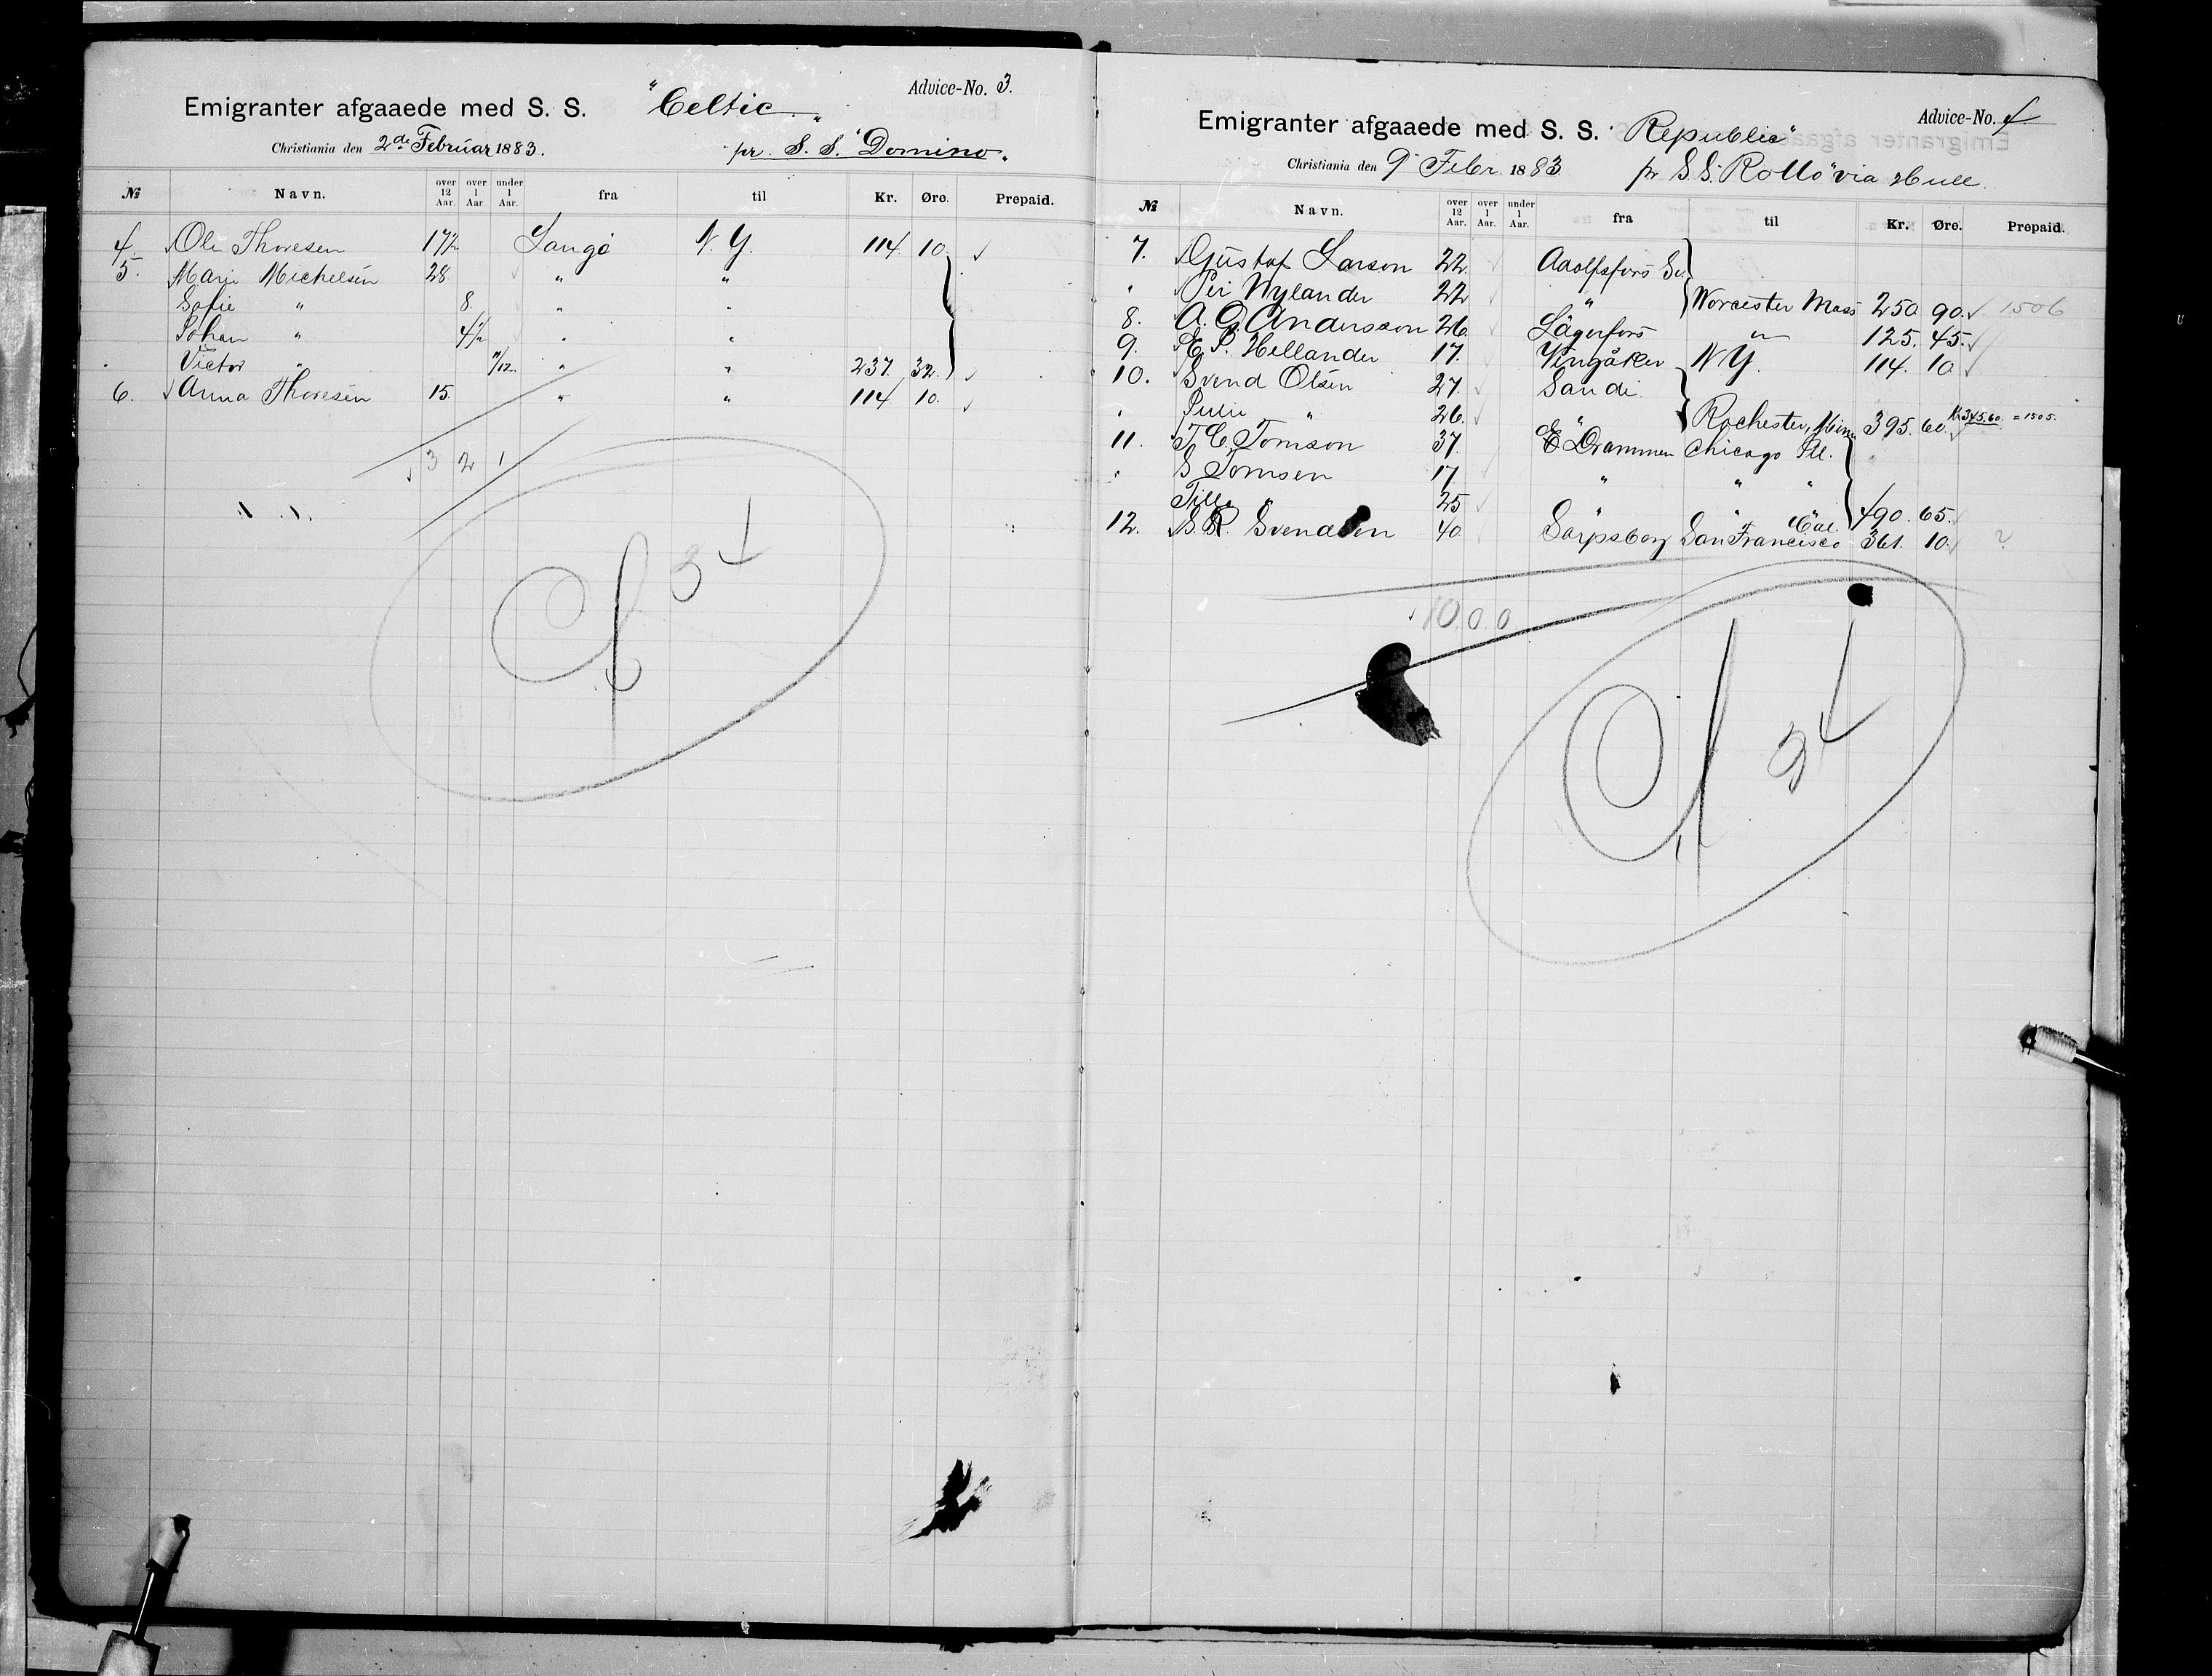 Advice-No. 3.
Emigranter afgaaede med S. S. "Celtic"
Christiania den 2de Februar 1883. pr. S. S. "Domino".
№ Navn. over 12 Aar. over 1 Aar. under 1 Aar. fra til Kr. Øre. Prepaid.
4. Ole Thoresen 17½ Langø N. Y. 114 10
5. Marie Michelsen 28 " "
Sofie " 8. " "
Johan " 4½ " "
Victor " 11/12 " " 237 32
6. Anna Thoresen 15. " " 114 10.
3 2 1
Advice-No. 4
Emigranter afgaaede med S. S. Republic"
Christiania den 9 Febr. 1883 pr S. S. "Rollo" via Hull.
№ Navn. over 12 Aar. over 1 Aar. under 1 Aar. fra til Kr. Øre. Prepaid.
7. Gustaf Larson 22 Adolfsfors Sv.
" Per Nylander 22 " Worcester Mass 250 90. 1506
8. A. G. Andersson 26 Lägerfors " 125. 45.
9. E. P. Hellander 17. Vingåker N Y. 114. 10
10. Svend Olsen 27. Sande
" Julie " 26. " Rochester, Minn 395. 60. Kr 345.60. = 1505.
11. T. C. Tomson 37. Drammen Chicago Ill.
" S Tomsen 17 " " "
Tilla " 25 " "  490. 65.
12. B. R. Svendsen 40 Sarpsborg San Francisco Cal. 361. 10. ?
10 0 0